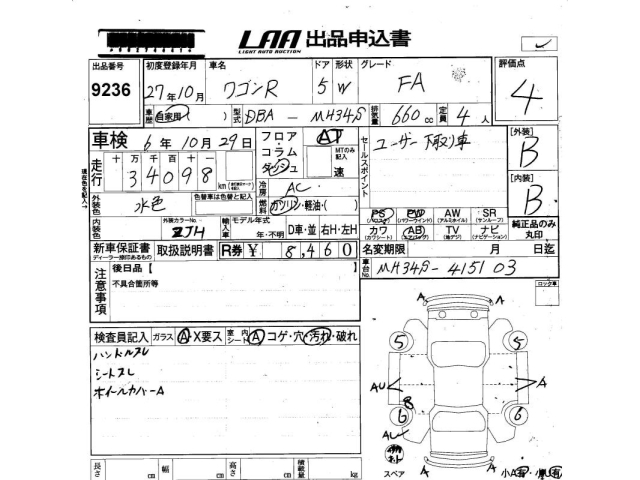 LAA 出品申込書
LIGHT AUTO AUCTION
出品番号 初度登録年月 車名 ドア 形状 グレード 評価点
9236 27年10月 ワゴンR 5 W FA 4
車歴 自家用 ) 型式 DBA - MH34S 排気量 660 cc 定員 4 人
車検 6年 10月 29日 フロア・コラム ダッシュ AT MTのみ記入 速 セールスポイント ユーザー下取り車 [外装] B
走行 十 万 千 百 十 一
34098 km 冷房 AC [内装] B
現在色を記入
外装色 水色 色替車は色替と記入 燃料 ガソリン・軽油・( )
PS (パワステ) PW (パワーウインド) AW (アルミホイル) SR (サンルーフ)
内装色 外装カラーNo. ZJH 輸入車 モデル年式 年・不明 D車・並 右H・左H
カワ (カワシート) AB (エアバッグ) TV (地デジ) ナビ (ナビゲーション) 純正品のみ丸印
新車保証書 ディーラー捺印あるもの 取扱説明書 R券 ¥ 8,460 名変期限 月 日迄
車台No. MH34S-415103
注意事項 後日品【 】
不具合箇所等
ロック車
検査員記入 ガラス A・X要ス 室内シート A コゲ・穴・汚れ・破れ
ハンドルスレ
シートスレ
ホイールカバーA
A A
5 5
AU A
B
6 6
AU
A A
スペア 小A有・小U有
長さ cm 幅 cm 高さ cm 積載量 kg